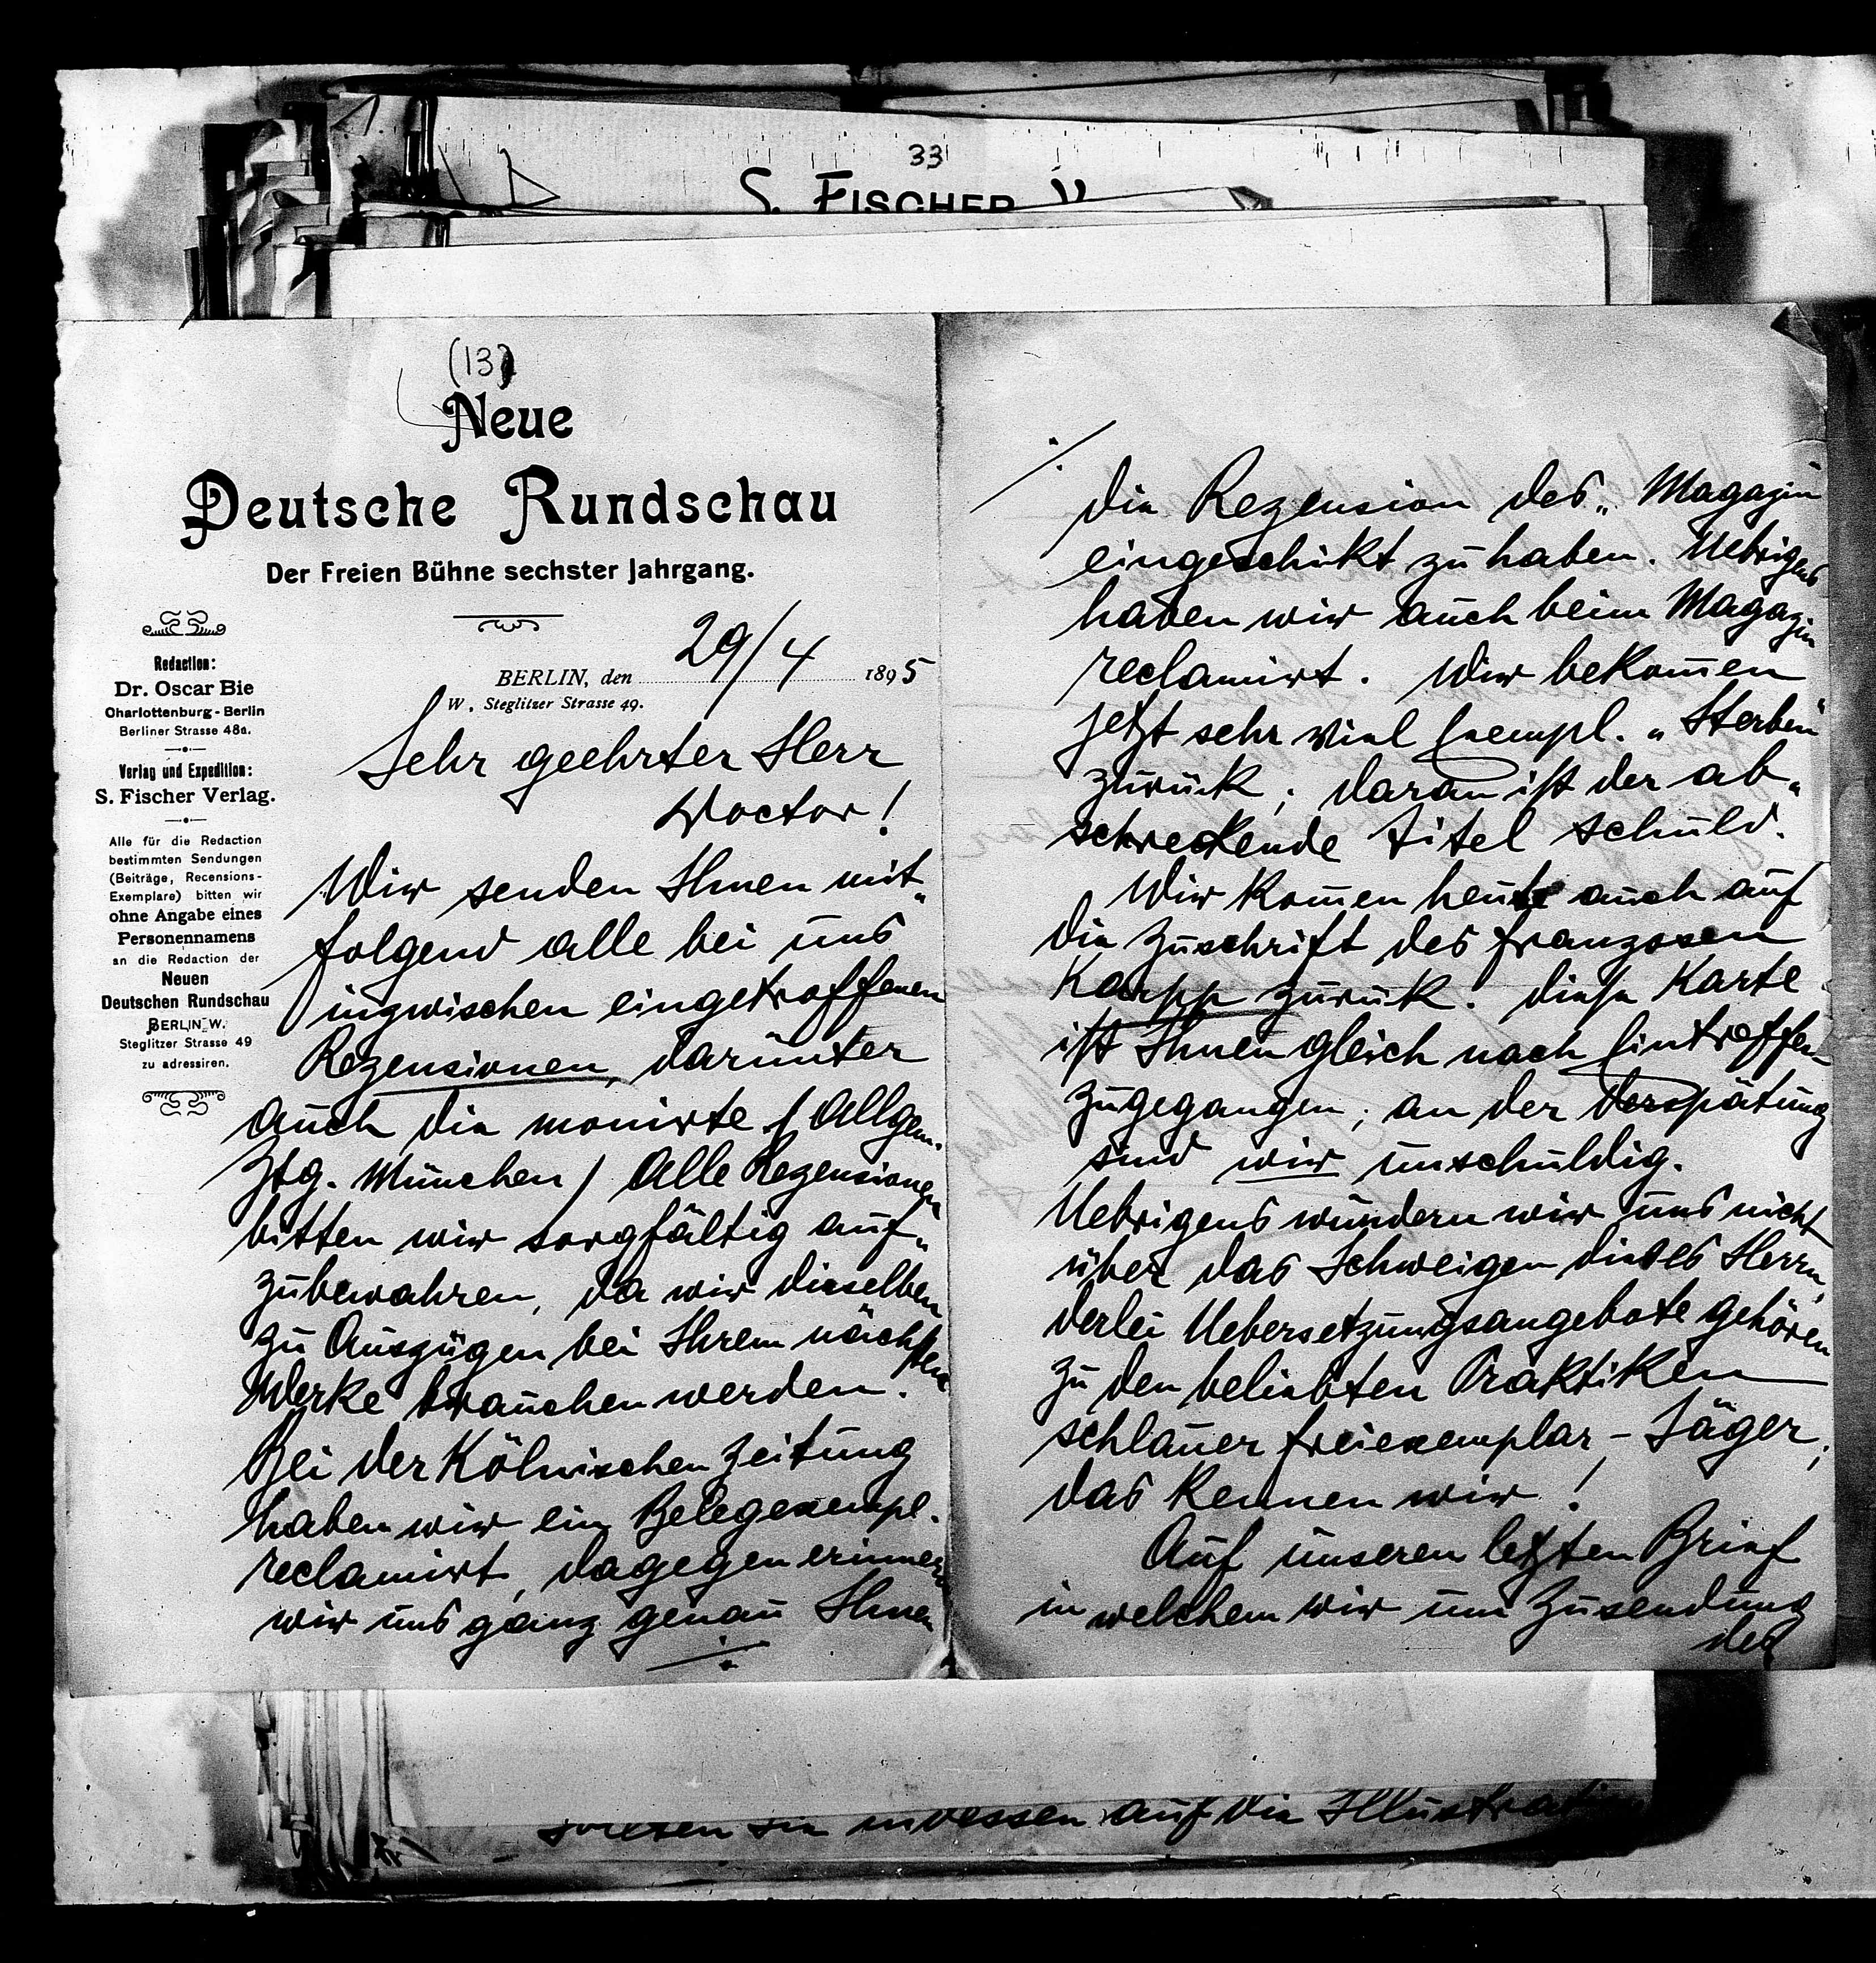 33
S. FISCHER V
(13)
Neue
Deutsche Rundschau
Der Freien Bühne sechster Jahrgang.
Redaction:
Dr. Oscar Bie
Charlottenburg-Berlin
Berliner Strasse 48a.
Verlag und Expedition:
S. Fischer Verlag.
Alle für die Redaction
bestimmten Sendungen
(Beiträge, Recensions-
Exemplare) bitten wir
ohne Angabe eines
Personennamens
an die Redaction der
Neuen
Deutschen Rundschau
BERLIN W.
Steglitzer Strasse 49
zu adressiren.
BERLIN, den 29/4 1895
W. Steglitzer Strasse 49.
Sehr geehrter Herr
Doctor!
Wir senden Ihnen mit-
folgend alle bei uns
inzwischen eingetroffenen
Rezensionen, darunter
auch die monirte / Allgem.
Ztg. München / Alle Rezensionen
bitten wir sorgfältig auf-
zubewahren, da wir dieselben
zu Auszügen bei Ihrem nächsten
Werke brauchen werden.
Bei der Kölnischen Zeitung
haben wir ein Belegexempl.
reclamirt, dagegen erinnern
wir uns ganz genau Ihnen
./.
./.
die Rezension des „Magazin
eingeschikt zu haben. Uebrigens
haben wir auch beim Magazin
reclamirt. Wir bekom̅en
jetzt sehr viel Exempl. „Sterben"
zurük; daran ist der ab-
schreckende Titel schuld.
Wir kom̅en heute auch auf
die Zuschrift des Franzosen
Karpp zurük. Diese Karte
ist Ihnen gleich nach Eintreffen
zugegangen; an der Verspätung
sind wir unschuldig.
Uebrigens wundern wir uns nicht
über das Schweigen dieses Herrn,
derlei Uebersetzungsangebote gehören
zu den beliebten Praktiken
schlauer Freiexemplar-Jäger,
das kennen wir!
Auf unseren letzten Brief
in welchem wir um Zusendung
der
sollten Sie indessen auf die Illustration